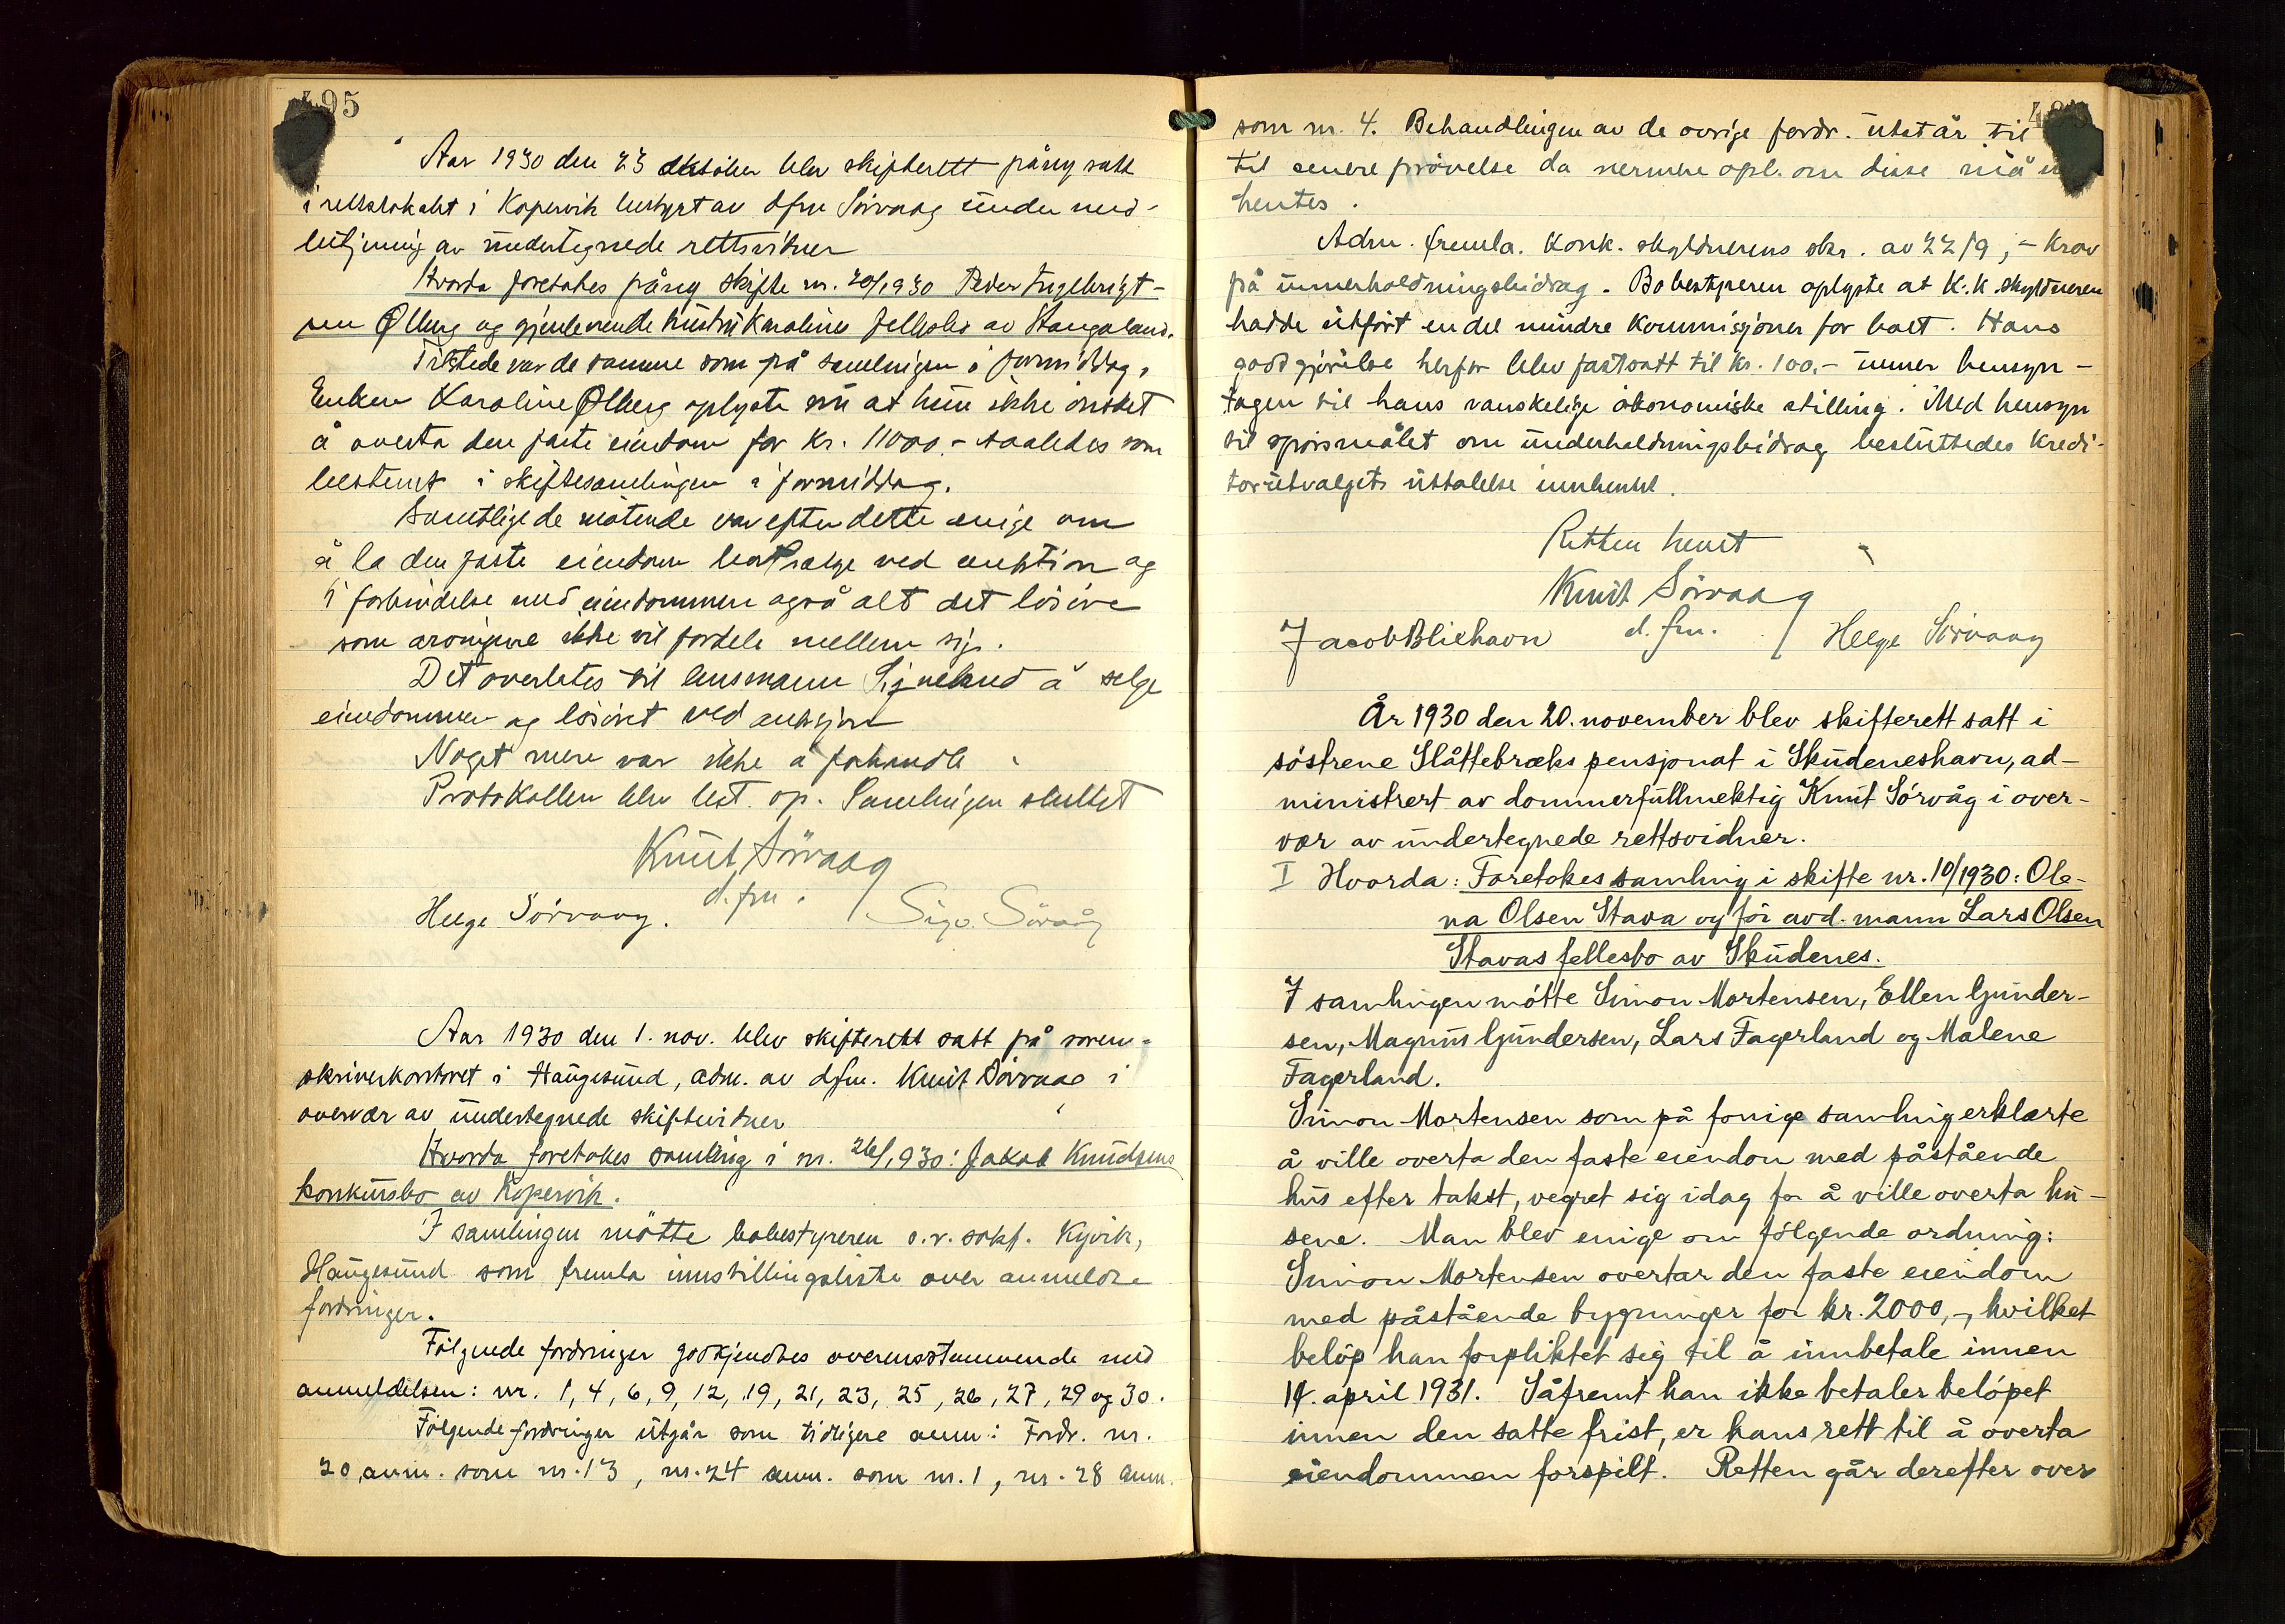 495
Aar 1930 den 23 oktober blev skifterett påny satt
i rettslokalet i Kopervik bestyrt av dfm Sörvaag under med-
betjening av undertegnede rettsvidner
Hvorda foretokes påny skifte nr. 20/1930 Peder Ingebrigt-
sen Ølberg og gjenlevende hustru Karolines fellesbo av Stangaland.
Tilstede var de samme som på samlingen i formiddag.
Enken Karoline Ølberg oplyste nu at hun ikke önsket
å overta den faste eiendom for kr. 11000.- saaledes som
bestemt i skiftesamlingen i formiddag.
Samtlige de mötende var efter dette enige om
å la den faste eiendom bortselge ved auktion og
i forbindelse med eiendommen også alt det lösöre
som arvingene ikke vil fordele mellem sig.
Det overlates til lensmann Signeland å selge
eiendommen og lösöret ved auksjon
Noget mere var ikke å forhandle
Protokollen blev lest op. Samlingen sluttet
Knut Sörvaag
d.fm.
Helge Sörvaag. / Sigv. Sörvåg
Aar 1930 den 1. nov. blev skifterett satt på soren-
skriverkontoret i Haugesund, adm. av dfm. Knut Sörvaag i
overvær av undertegnede skiftevidner
Hvorda foretokes samling i nr. 26/1930: Jakob Knudsens
konkursbo av Kopervik.
I samlingen mötte bobestyreren o.r. sakf. Kyvik,
Haugesund som fremla innstillingsliste over anmeldte
fordringer.
Fölgende fordringer godkjendtes overensstemmende med
anmeldelsen: nr. 1, 4, 6, 9, 12, 19, 21, 23, 25, 26, 27, 29 og 30.
Fölgende fordringer utgår som tidligere anm: Fordr. nr.
20 anm. som nr. 13, nr. 24 anm. som nr. 1, nr. 28 anm.
som nr. 4. Behandlingen av de övrige fordr. utstår til
til senere prövelse da nermere opl. om disse må
hentes.
Adm. fremla. Konk. skyldnerens skr. av 22/9, - krav
på underholdningsbidrag. Bobestyreren oplyste at K.k. skyldneren
hadde utfört endel mindre kommisjoner for boet. Hans
godtgjörelse herfor blev fastsatt til kr. 100.- under hensyn-
tagen til hans vanskelige ökonomiske stilling. Med hensyn
til spörsmålet om underholdningsbidrag besluttedes Kredi-
torutvalgets uttalelse innhentet.
Retten hevet
Knut Sörvaag
d.fm.
Jacob Bliehavn / Helge Sörvaag
År 1930 den 20. november blev skifterett satt i
söstrene Slåttebræks pensjonat i Skudeneshavn, ad-
ministrert av dommerfullmektig Knut Sörvåg i over-
vær av undertegnede rettsvidner.
I Hvorda: Foretokes samling i skifte nr. 10/1930: Ole-
na Olsen Stava og för avd. mann Lars Olsen
Stavas fellesbo av Skudenes.
I samlingen mötte Simon Mortensen, Ellen Gunder-
sen, Magnus Gundersen, Lars Fagerland og Malene
Fagerland.
Simon Mortensen som på forrige samling erklærte
å ville overta den faste eiendom med påstående
hus efter takst, vegret sig idag for å ville overta hu-
sene. Man blev enige om fölgende ordning:
Simon Mortensen overtar den faste eiendom
med påstående bygninger for kr. 2000,-, hvilket
belöp han forpliktet sig til å innbetale innen
14. april 1931. Såfremt han ikke betaler belöpet
innen den satte frist, er hans rett til å overta
eiendommen forspilt. Retten går derefter over